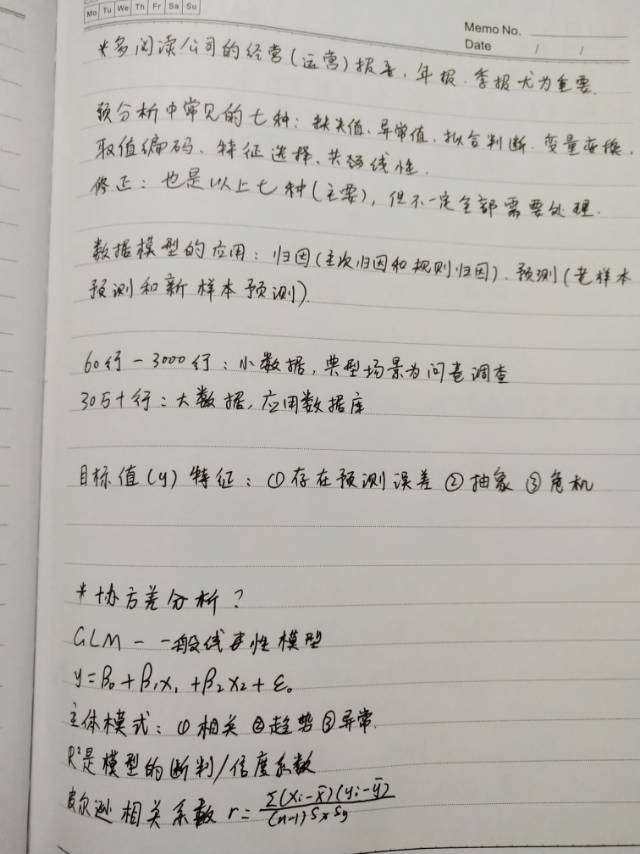 Mo Tu We Th Fr Sa Su
Memo No.
Date / /
*多阅读公司的经营(运营)报表，年报，季报尤为重要.
预分析中常见的七种：缺失值、异常值、拟合判断、变量变换、
取值编码、特征选择、共线性.
修正：也是以上七种(主要)，但不一定全部需要处理.
数据模型的应用：归因(主次归因和规则归因)、预测(老样本
预测和新样本预测).
60行－3000行：小数据，典型场景为问卷调查
30万+行：大数据，应用数据库
目标值(y)特征：①存在预测误差 ②抽象 ③危机
*协方差分析？
GLM－一般线性模型
y=β₀+β₁x₁+β₂x₂+ε₀
主体模式：①相关 ②趋势 ③异常.
R²是模型的断判/信度系数
皮尔逊相关系数 r= Σ(xᵢ-x̄)(yᵢ-ȳ) / (n-1)SxSy